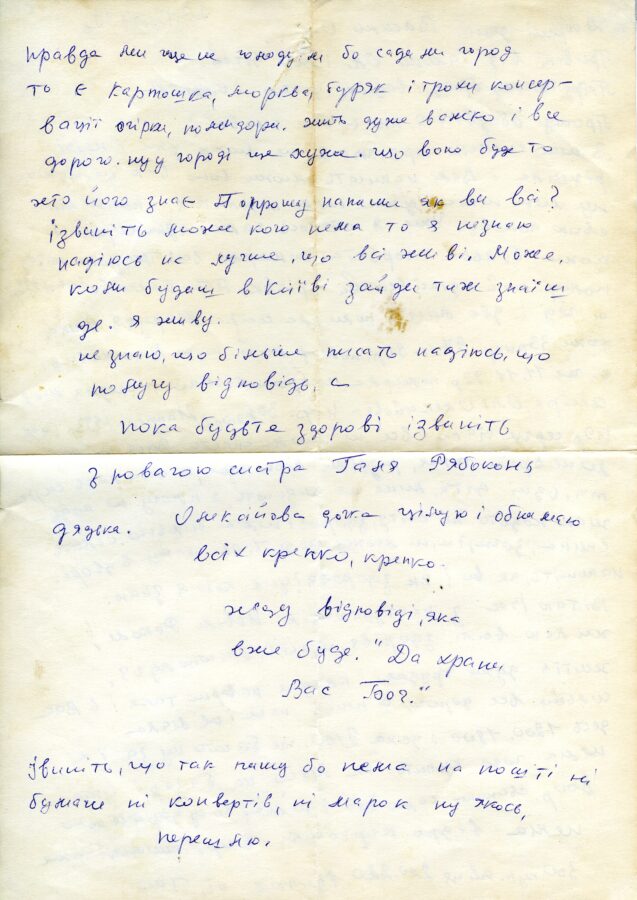 правда ми ще не голодуєм бо садили город
то є картошка, морква, буряк і трохи консер-
вації огірки, помидори. жить дуже важко і все
дорого. ну у городі ще хуже. що воно буде то
хто його знає Попрошу напиши як ви всі?
ізвиніть може кого нема то я незнаю
надіюсь на лучше, що всі живі. Може,
коли будеш в Києві зайди ти ж знаїш
де. я живу.
незнаю, що більше писать надіюсь, що
получу відповідь,
пока будьте здорові ізвиніть
З повагою систра Ганя Рябоконь
дядька. Олексійова дочка цілую і обнімаю
всіх крепко, крепко.
жду відповіді, яка
вже буде. "Да храни
Вас Бог."
Ізвиніть, що так пишу бо нема на пошті ні
бумаги ні конвертів, ні марок ну якось,
перешлю.